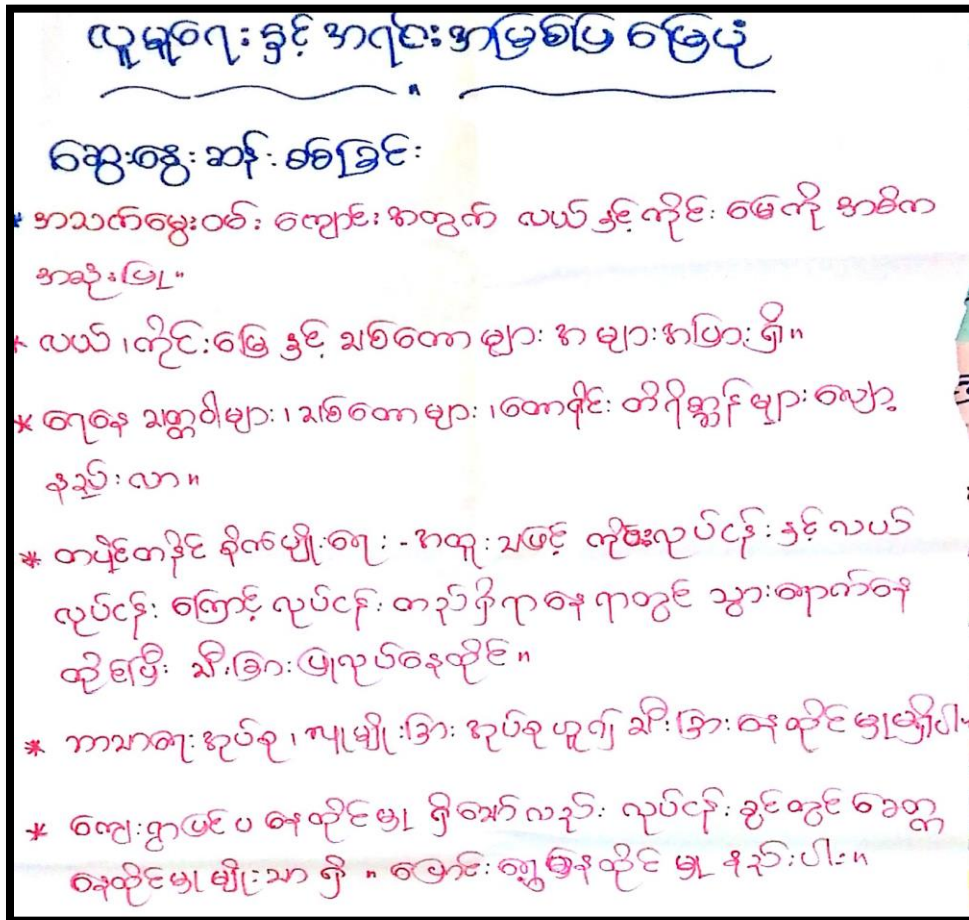 လူမှုရေးနှင့် အရင်းအမြစ်ပြ မြေပုံ
ဆွေးနွေးဆန်းစစ်ခြင်း
* အသက်မွေးဝမ်းကျောင်းအတွက် လယ်နှင့်ကိုင်းမြေကို အဓိက
အသုံးပြု။
* လယ်၊ ကိုင်းမြေနှင့် သစ်တောများ အများအပြားရှိ။
* ရေနေသတ္တဝါများ၊ သစ်တောများ၊ တောရိုင်းတိရိစ္ဆာန်များ လျော့
နည်းလာ။
* တပိုင်တနိုင် စိုက်ပျိုးရေး - အထူးသဖြင့် ကိုင်းလုပ်ငန်းနှင့် လယ်
လုပ်ငန်းကြောင့် လုပ်ငန်းတည်ရှိရာနေရာတွင် သွားရောက်နေ
ထိုင်ပြီး သီးခြားပြုလုပ်နေထိုင်။
* ဘာသာရေးအုပ်စု၊ လူမျိုးခြားအုပ်စုဟူ၍ သီးခြားနေထိုင်မှုမရှိပါ။
* ကျေးရွာပြင်ပ နေထိုင်မှု ရှိသော်လည်း လုပ်ငန်းခွင်တွင် ခေတ္တ
နေထိုင်မှုမျိုးသာ ရှိ။ ပြောင်းရွှေ့နေထိုင်မှု နည်းပါး။